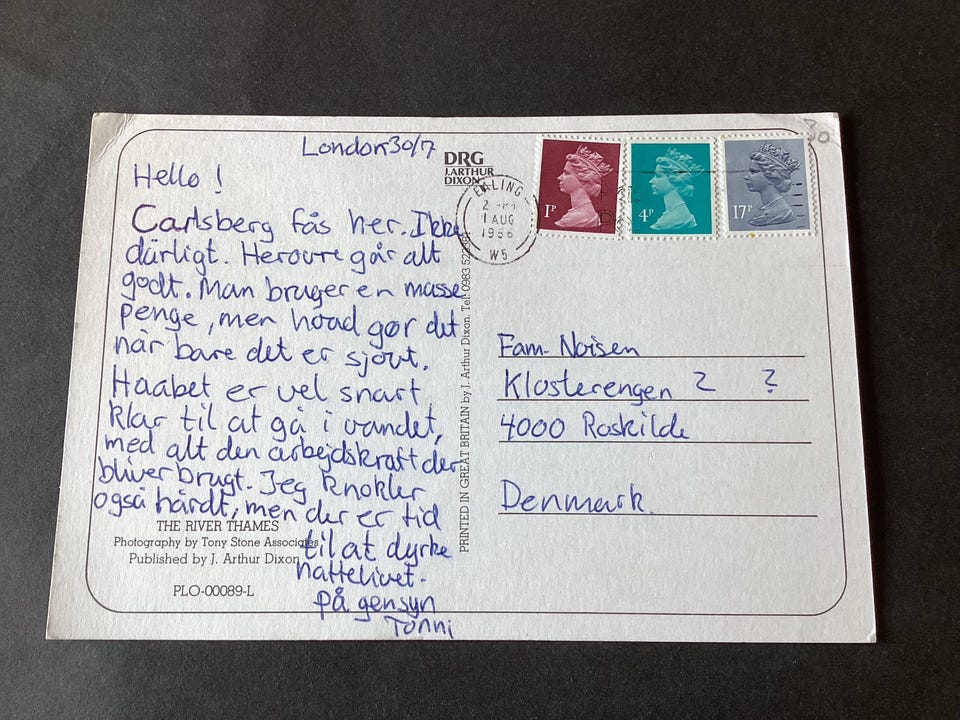 London 30/7
Hello !
Carlsberg fås her. Ikke
dårligt. Herovre går alt
godt. Man bruger en masse
penge, men hvad gør det
når bare det er sjovt.
Haabet er vel snart
klar til at gå i vandet,
med alt den arbejdskraft der
bliver brugt. Jeg knokler
også hårdt, men der er tid
til at dyrke
nattelivet.
på gensyn
Tonni
THE RIVER THAMES
Photography by Tony Stone Associates
Published by J. Arthur Dixon
PLO-00089-L
DRG
J.ARTHUR
DIXON
PRINTED IN GREAT BRITAIN by J. Arthur Dixon. Tel: 0983
EALING
1 AUG
1986
W5
1P
4P
17P
Fam. Noisen
Klosterengen 2 ?
4000 Roskilde
Denmark.